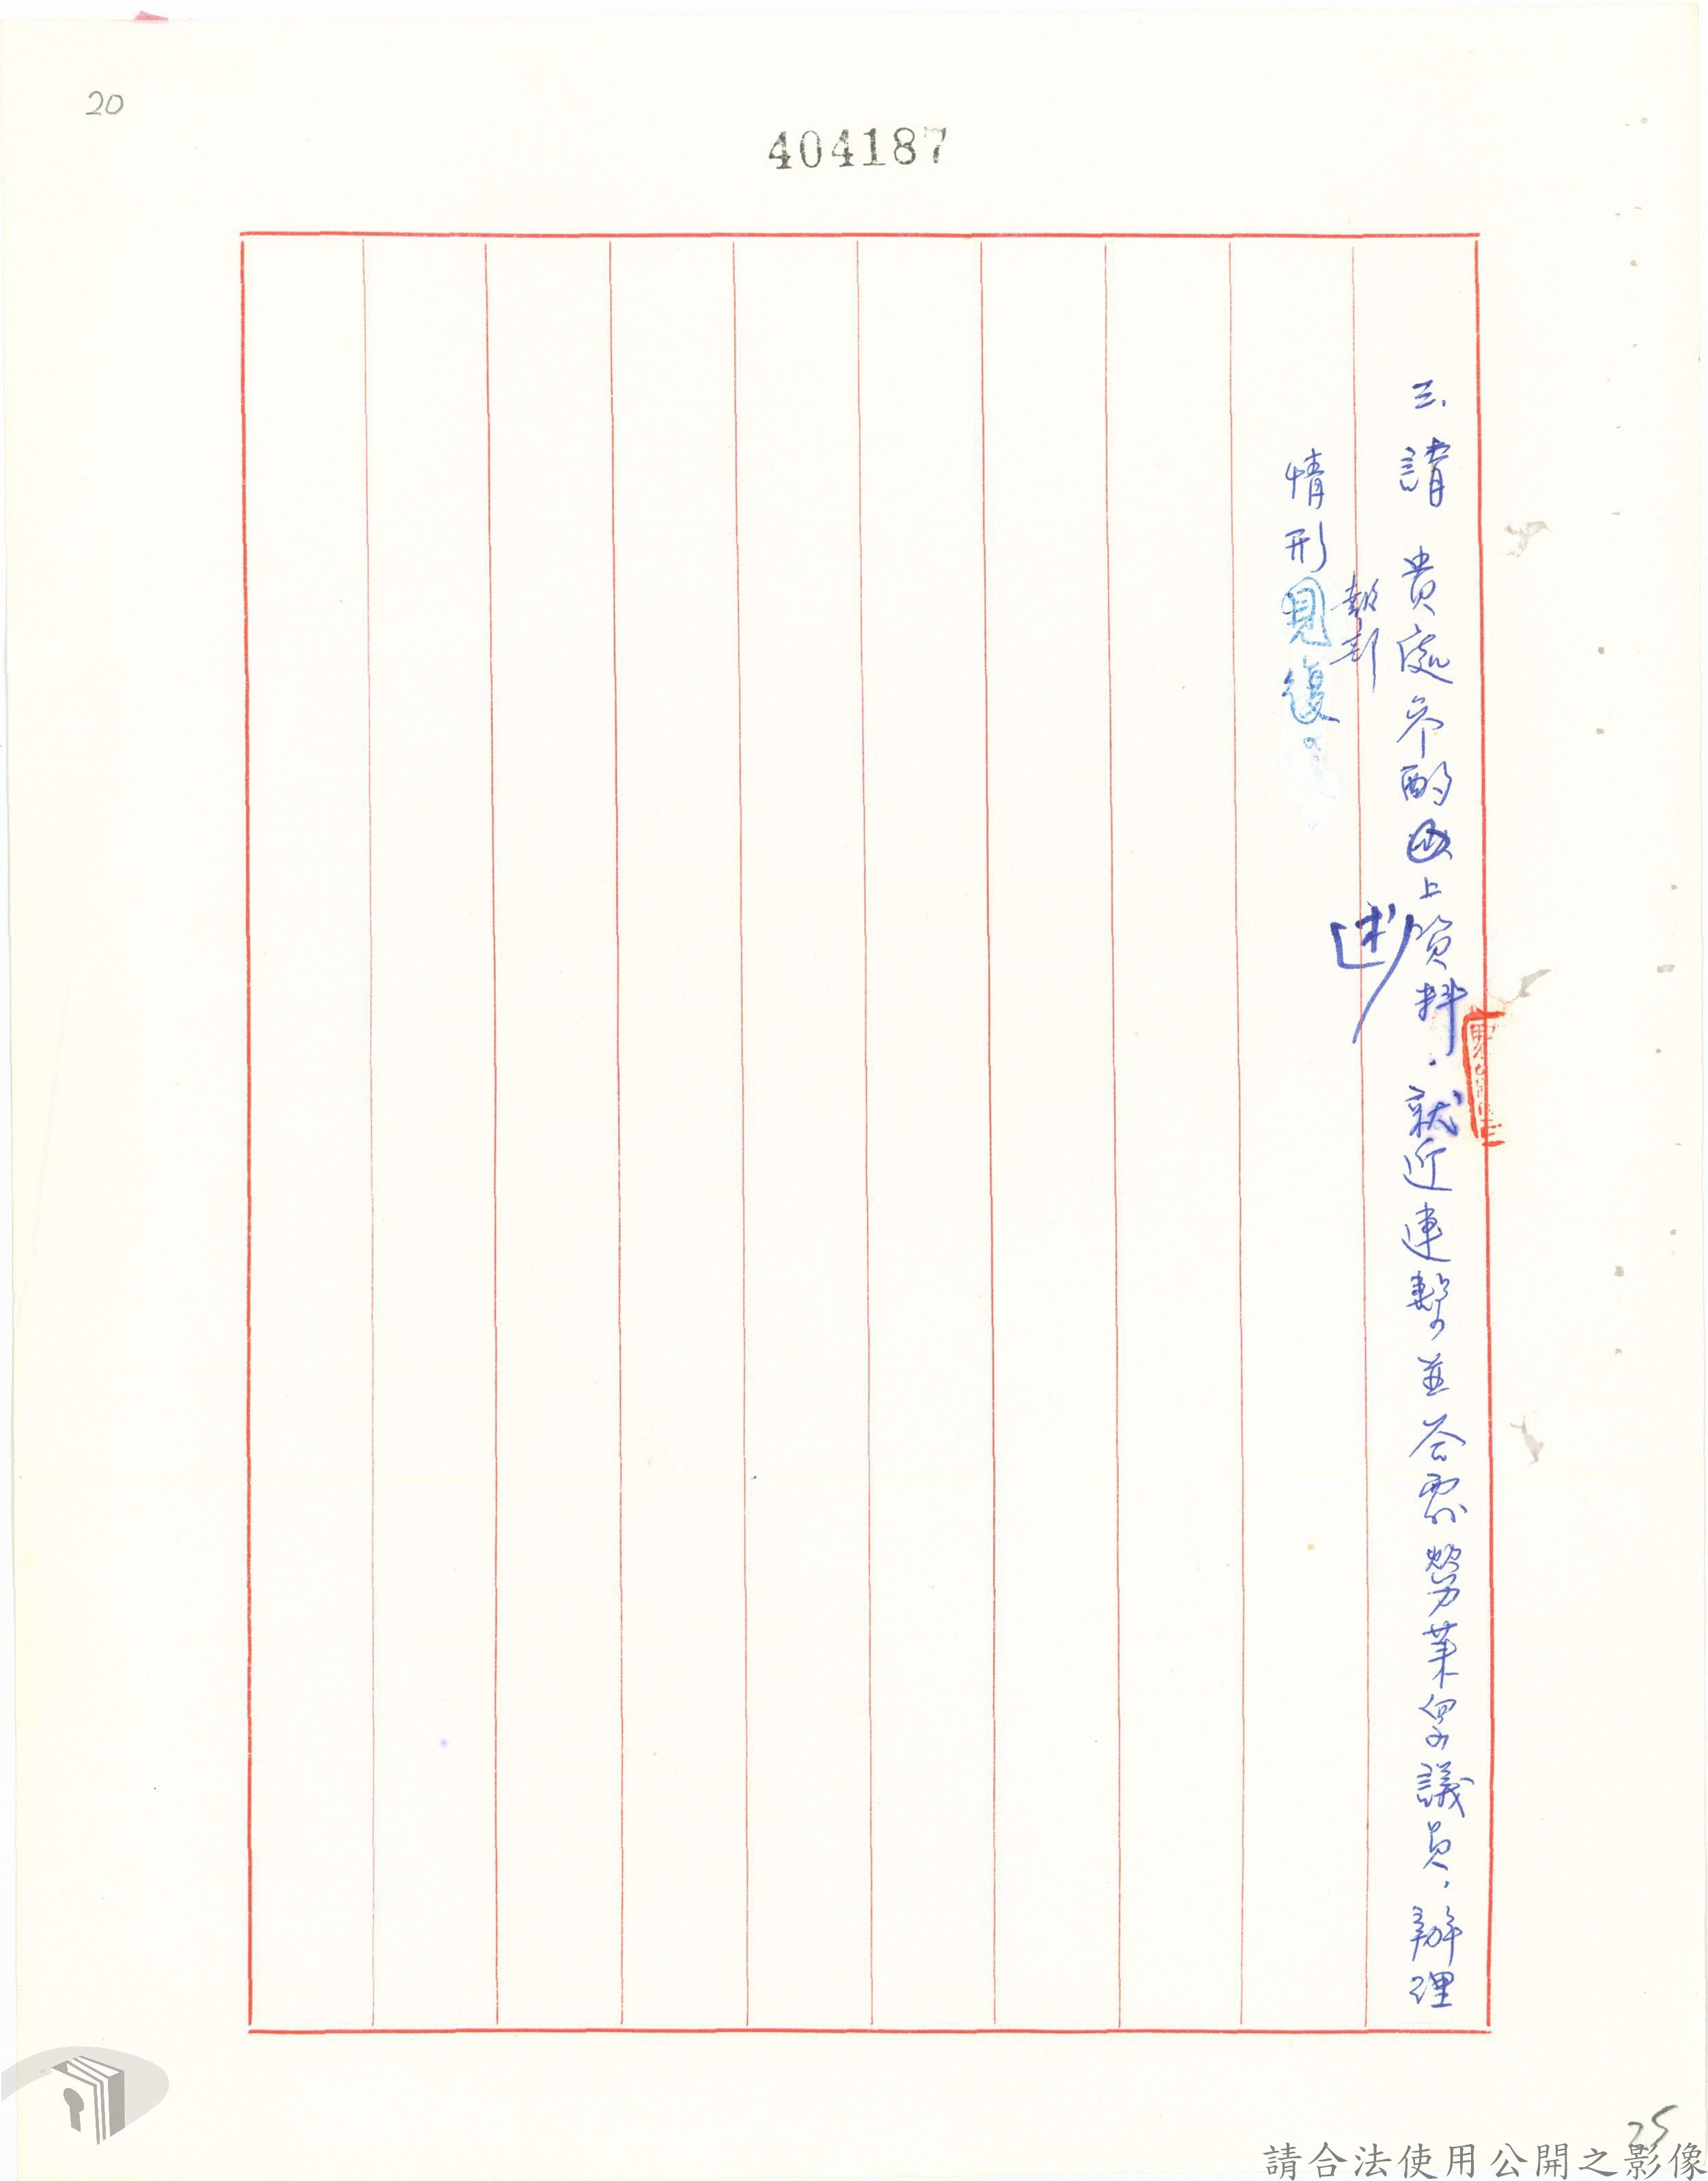 20
404187
三、請 貴處參酌以上資料,就近連繫並答覆勞英案議員,辦理
述
報部
情形見復。
25
請合法使用公開之影像